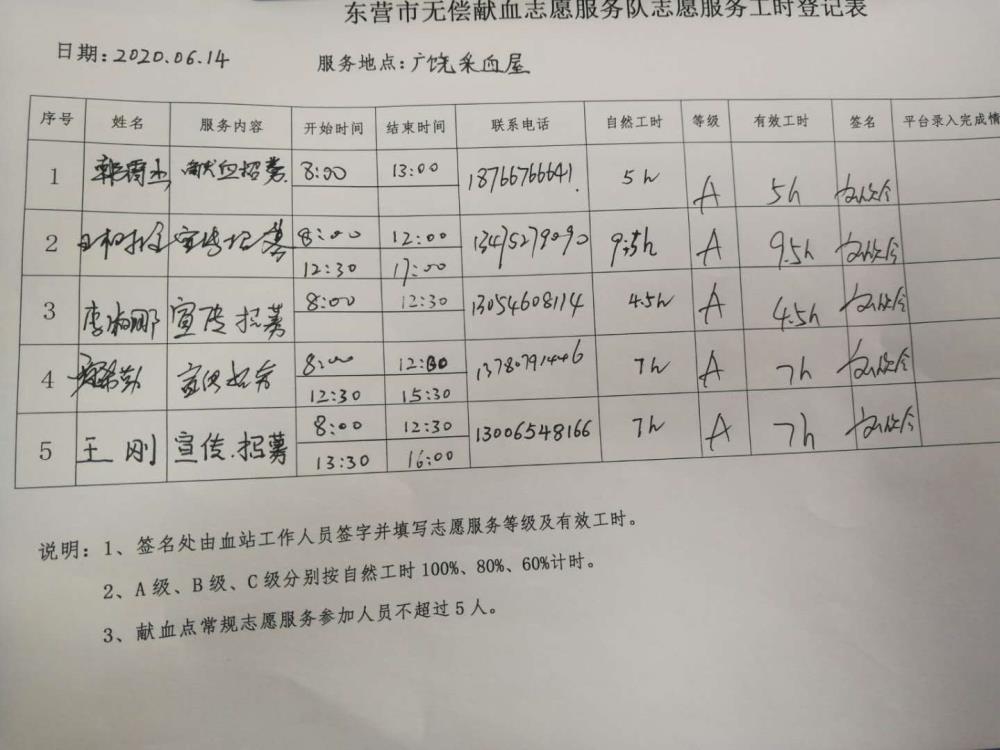 东营市无偿献血志愿服务队志愿服务工时登记表
日期:2020.06.14 服务地点:广饶采血屋
序号 姓名 服务内容 开始时间 结束时间 联系电话 自然工时 等级 有效工时 签名 平台录入完成情
1 献血招募 8:00 13:00 18766766641 5h A 5h
2 宣传招募 8:00 12:00 13475279090 9.5h A 9.5h
12:30 17:00
3 李湘娜 宣传招募 8:00 12:30 13054608114 4.5h A 4.5h
4 8:00 12:00 13780791446 7h A 7h
12:30 15:30
5 王刚 宣传.招募 8:00 12:30 13006548166 7h A 7h
13:30 16:00
说明:1、签名处由血站工作人员签字并填写志愿服务等级及有效工时。
2、A级、B级、C级分别按自然工时100%、80%、60%计时。
3、献血点常规志愿服务参加人员不超过5人。